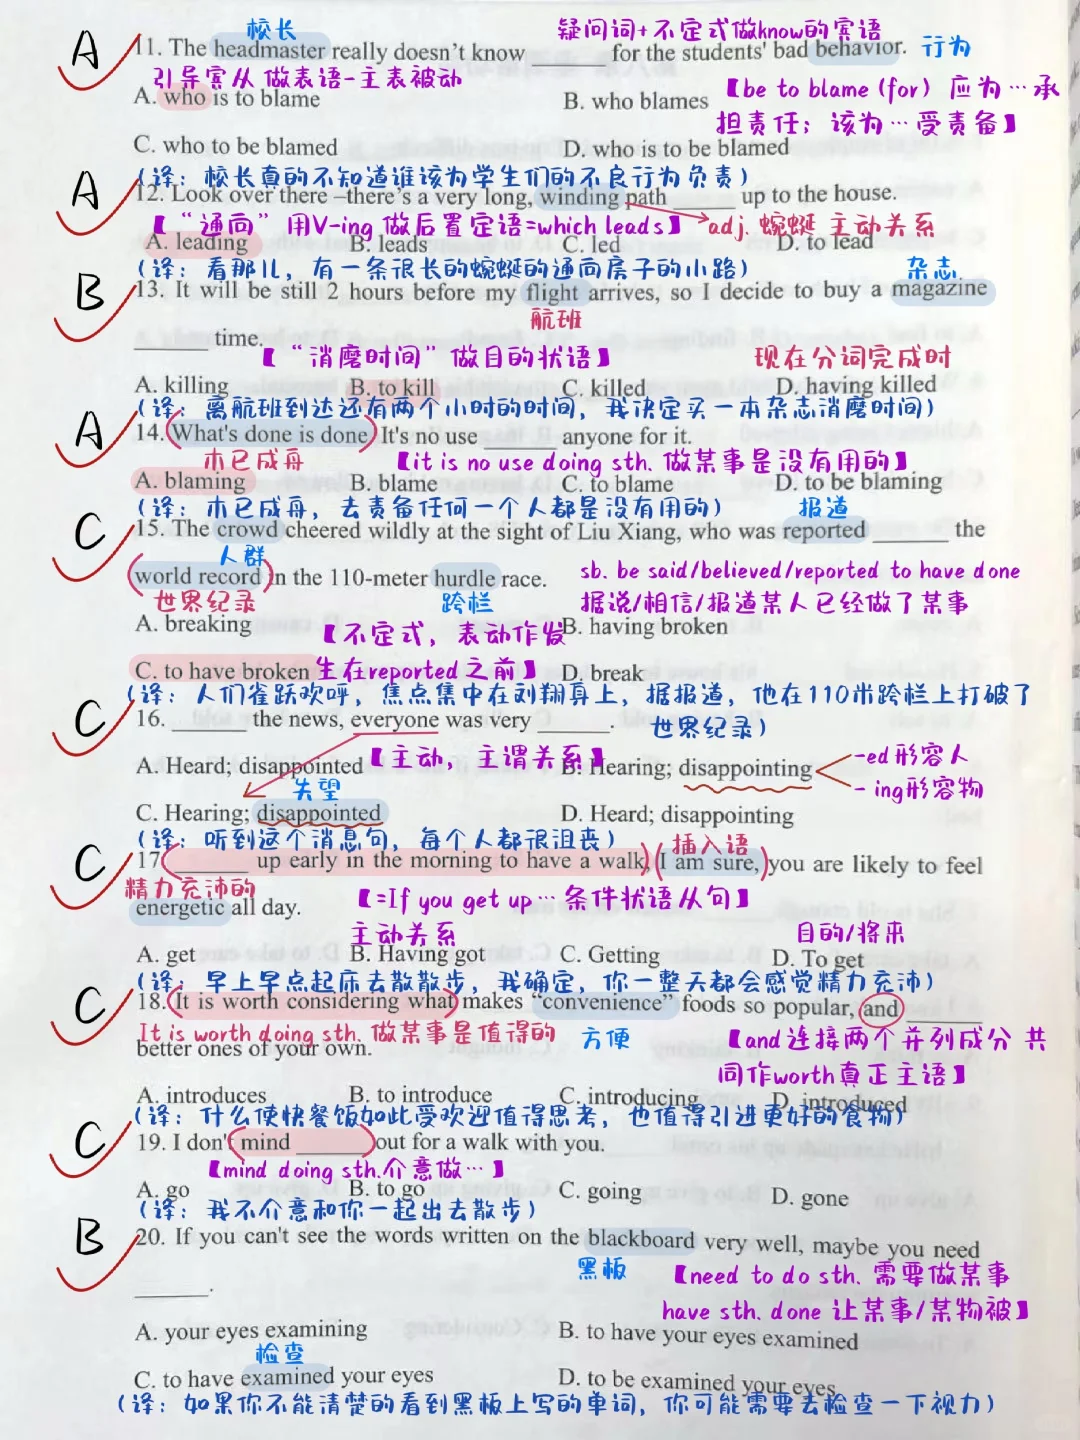 校长
疑问词+不定式做know的宾语
A
11. The headmaster really doesn't know ______ for the students' bad behavior. 行为
引导宾从 做表语-主表被动
【be to blame (for) 应为…承
A. who is to blame
B. who blames
担责任; 该为…受责备】
C. who to be blamed
D. who is to be blamed
(译: 校长真的不知道谁该为学生们的不良行为负责)
A
12. Look over there –there's a very long, winding path ______ up to the house.
【“通向”用V-ing 做后置定语=which leads】 adj. 蜿蜒 主动关系
A. leading B. leads C. led D. to lead
(译: 看那儿, 有一条很长的蜿蜒的通向房子的小路)
杂志
B
13. It will be still 2 hours before my flight arrives, so I decide to buy a magazine
航班
______ time.
【“消磨时间”做目的状语】
现在分词完成时
A. killing B. to kill C. killed D. having killed
(译: 离航班到达还有两个小时的时间, 我决定买一本杂志消磨时间)
A
14. What's done is done. It's no use ______ anyone for it.
木已成舟 【it is no use doing sth. 做某事是没有用的】
A. blaming B. blame C. to blame D. to be blaming
(译: 木已成舟, 去责备任何一个人都是没有用的)
报道
C
15. The crowd cheered wildly at the sight of Liu Xiang, who was reported ______ the
人群
world record in the 110-meter hurdle race.
sb. be said/believed/reported to have done
世界纪录 跨栏
据说/相信/报道某人已经做了某事
A. breaking
【不定式, 表动作发
B. having broken
C. to have broken
生在reported之前】
D. break
(译: 人们雀跃欢呼, 焦点集中在刘翔身上, 据报道, 他在110米跨栏上打破了
世界纪录)
C
16. ______ the news, everyone was very ______.
【主动, 主谓关系】
-ed形容人
A. Heard; disappointed
B. Hearing; disappointing
- ing形容物
失望
C. Hearing; disappointed
D. Heard; disappointing
(译: 听到这个消息句, 每个人都很沮丧)
插入语
C
17. ______ up early in the morning to have a walk, I am sure, you are likely to feel
精力充沛的
energetic all day.
【=If you get up…条件状语从句】
主动关系
目的/将来
A. get B. Having got C. Getting D. To get
(译: 早上早点起床去散散步, 我确定, 你一整天都会感觉精力充沛)
C
18. It is worth considering what makes “convenience” foods so popular, and ______
It is worth doing sth. 做某事是值得的
方便
【and连接两个并列成分 共
better ones of your own.
同作worth真正主语】
A. introduces B. to introduce C. introducing D. introduced
(译: 什么使快餐饭如此受欢迎值得思考, 也值得引进更好的食物)
C
19. I don't mind ______ out for a walk with you.
【mind doing sth.介意做…】
A. go B. to go C. going D. gone
(译: 我不介意和你一起出去散步)
B
20. If you can't see the words written on the blackboard very well, maybe you need
黑板
【need to do sth. 需要做某事
______.
have sth. done 让某事/某物被】
A. your eyes examining
B. to have your eyes examined
检查
C. to have examined your eyes
D. to be examined your eyes
(译: 如果你不能清楚的看到黑板上写的单词, 你可能需要去检查一下视力)